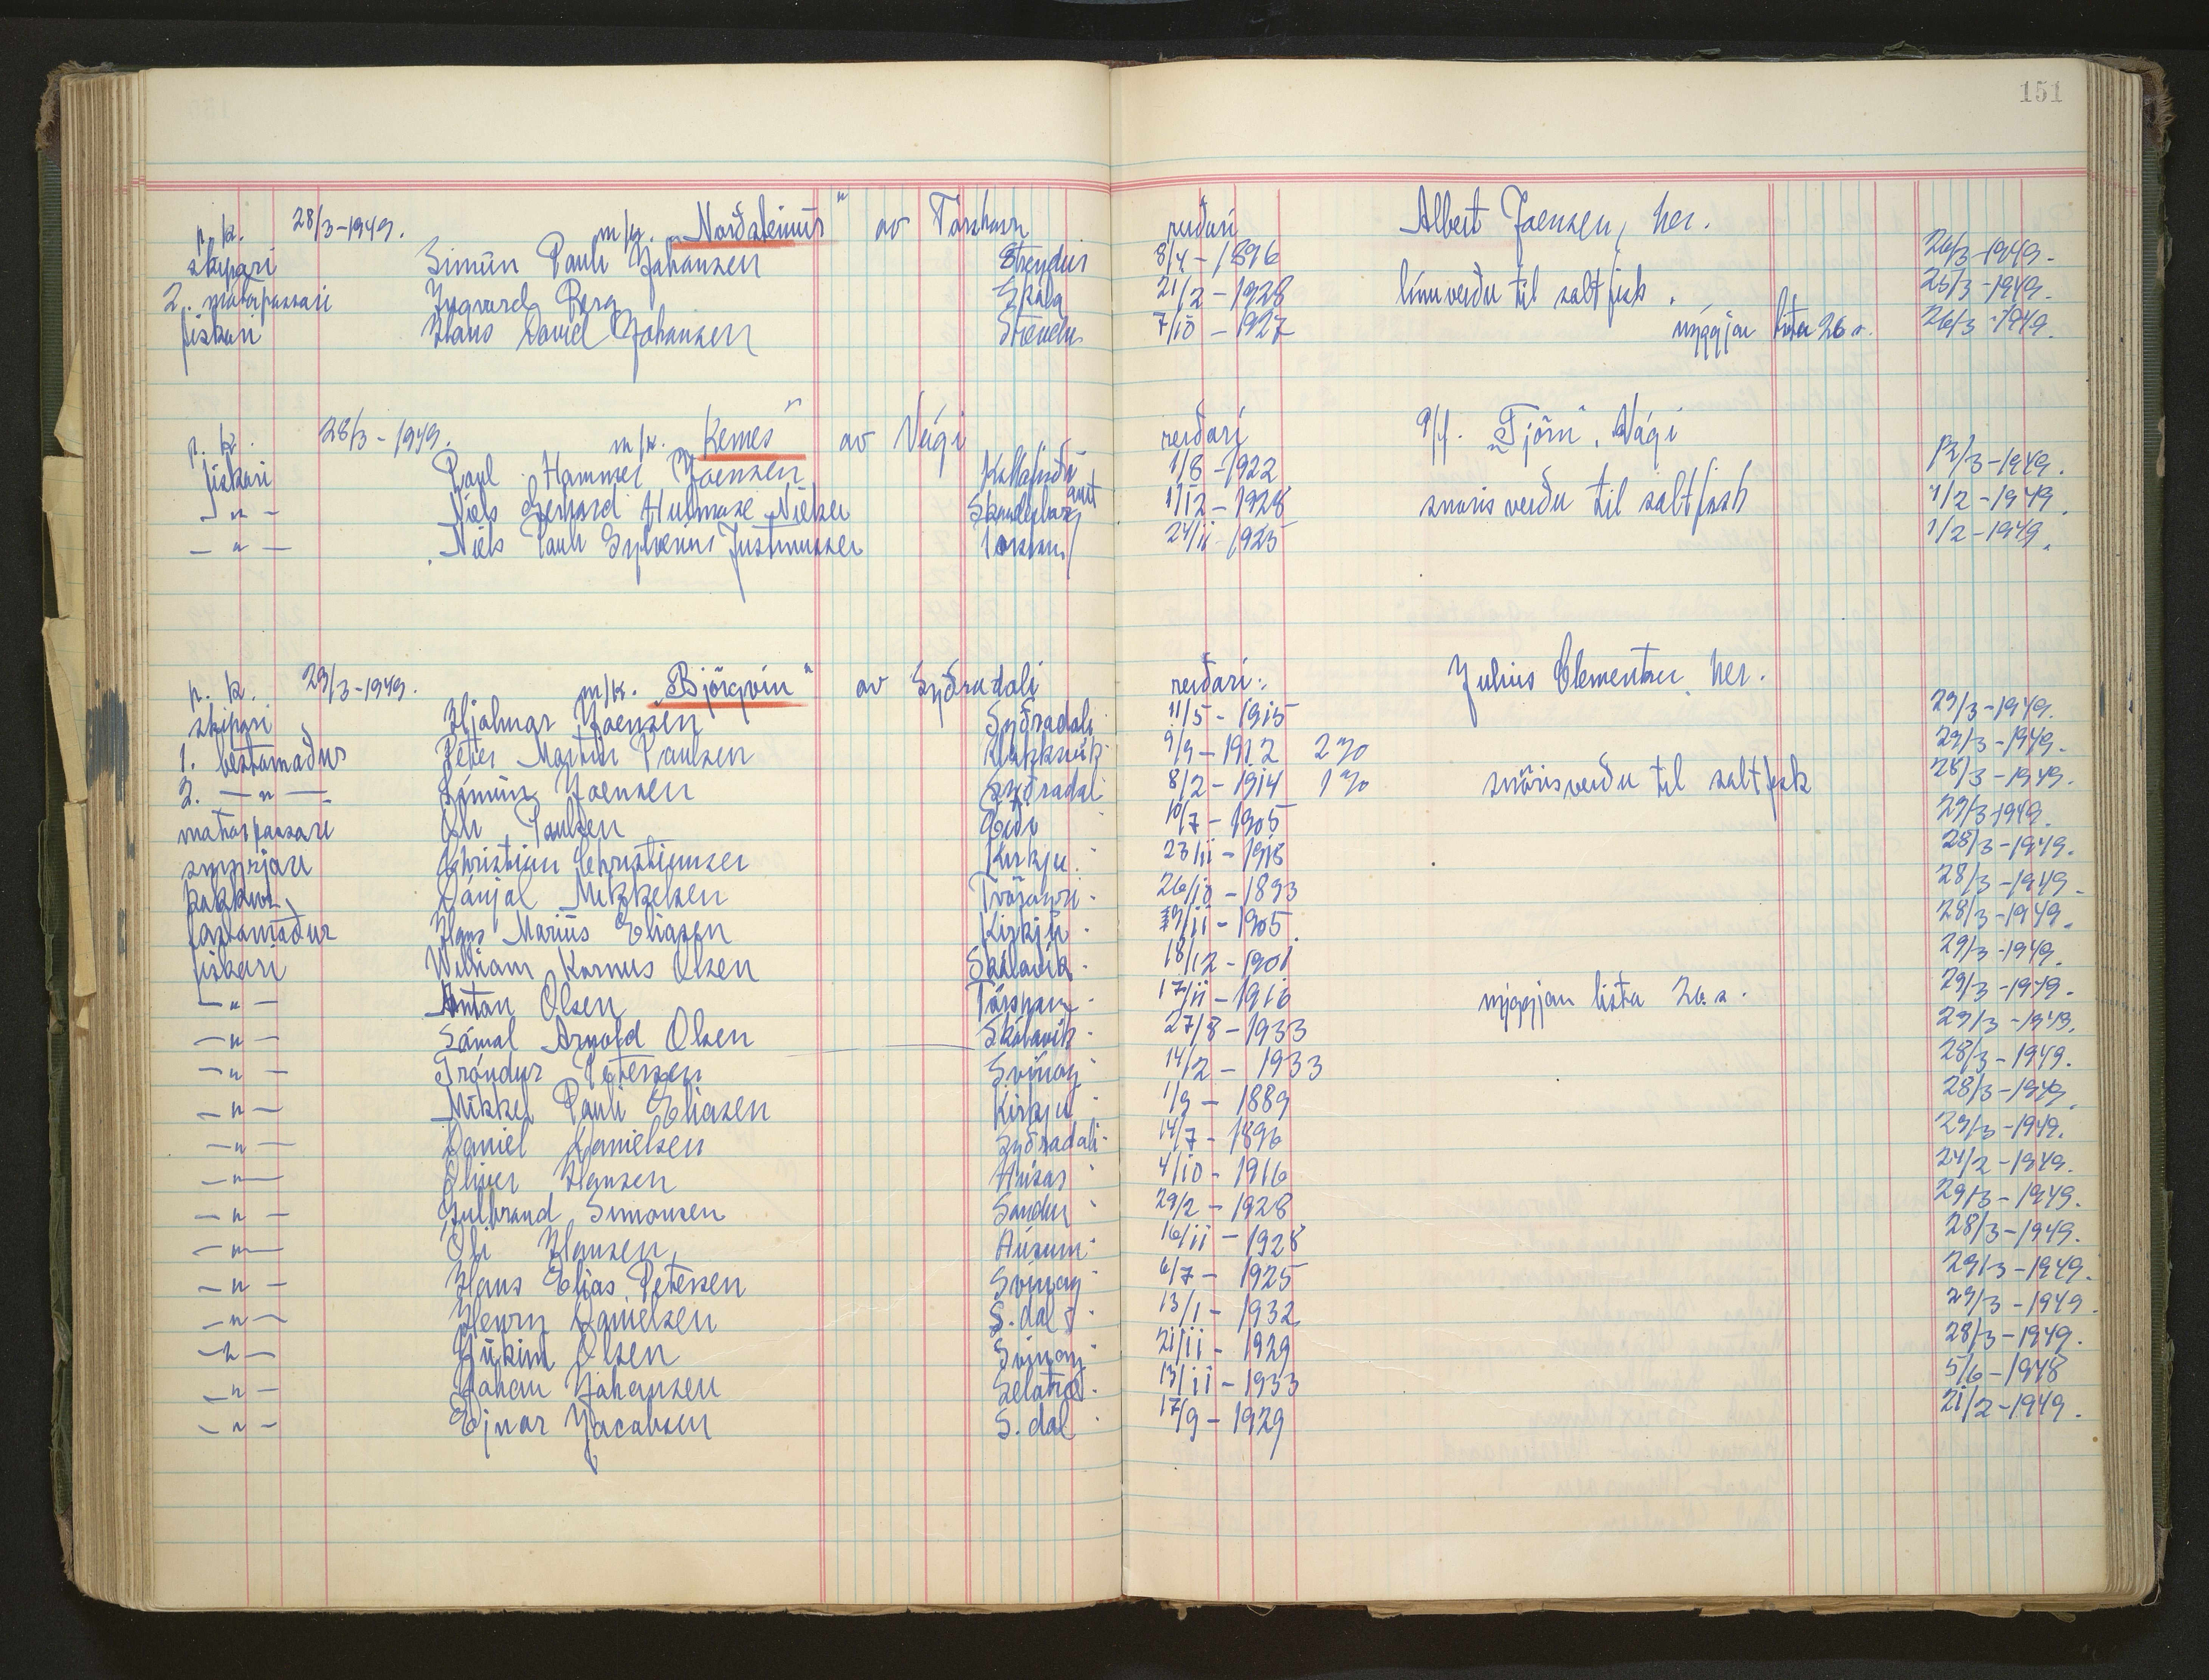 151
p. k. 28/3-1949. m/k. „Norðsteinur" av Tórshavn reiðari Albert Joensen, her.
skipari Simún Pauli Johansen Strendur 8/4-1896 26/3-1949.
2. matpassari Ingvard Berg Skála 21/2-1928 línuveiðu til saltfisk. 25/3-1949.
fiskari Hans David Johansen Strendur 7/10-1927 mýggjan lista 26 s. 26/3-1949.
p. k. 28/3-1949. m/k. „Kemes" av Vági reiðari P/f. „Tjörn", Vági
fiskari Poul Hammer Joensen Kollafirði 1/8-1922 12/3-1949.
-"- Niels Gerhard Nielsen Skanderborg amt 1/12-1928 snørisveiðu til saltfisk 1/2-1949.
-"- Niels Pauli Sylverius Justinussen Tórshavn 24/11-1925 1/2-1949.
p. k. 29/3-1949. m/k. „Björgvin" av Syðradali reiðari: Julius Clementsen, her.
skipari Hjalmar Joensen Syðradali 11/5-1915 29/3-1949.
1. bestamaður Peter Martin Poulsen Klakksvík 9/9-1912 2% 29/3-1949.
2. -"- Símun Joensen Syðradal 8/2-1914 1% snörisveiðu til saltfisk 28/3-1949.
matpassari Óli Poulsen Eiði 10/7-1905 29/3-1949.
smyrjari Christian Christiansen Kirkju 23/11-1918 28/3-1949.
kokkur Dánjal Mikkelsen Tvöroyri 26/10-1893 28/3-1949.
fastamaður Hans Marius Eliasen Kirkju 19/11-1905 28/3-1949.
fiskari William Kornus Olsen Skálavík 18/12-1901 29/3-1949.
-"- Anton Olsen Tórshavn 17/11-1916 mýggjan lista 26 s. 29/3-1949.
-"- Sámal Arnold Olsen Skálavík 27/8-1933 29/3-1949.
-"- Tróndur Petersen Svínoy 14/2-1933 28/3-1949.
-"- Mikkel Pauli Eliasen Kirkju 1/9-1889 28/3-1949.
-"- Daniel Danielsen Syðradali 14/7-1896 29/3-1949.
-"- Oliver Hansen Húsar 4/10-1916 24/2-1949.
-"- Gulbrand Simonsen Sandur 29/2-1928 29/3-1949.
-"- Óli Hansen Húsum 16/11-1928 28/3-1949.
-"- Hans Elias Petersen Svínoy 6/7-1925 29/3-1949.
-"- Henry Danielsen S. dal 13/1-1932 29/3-1949.
-"- Júkim Olsen Svínoy 21/11-1929 28/3-1949.
-"- Johan Johansen Selatrað 13/11-1933 5/6-1948
-"- Ejnar Jacobsen S. dal 17/9-1929 21/2-1949.